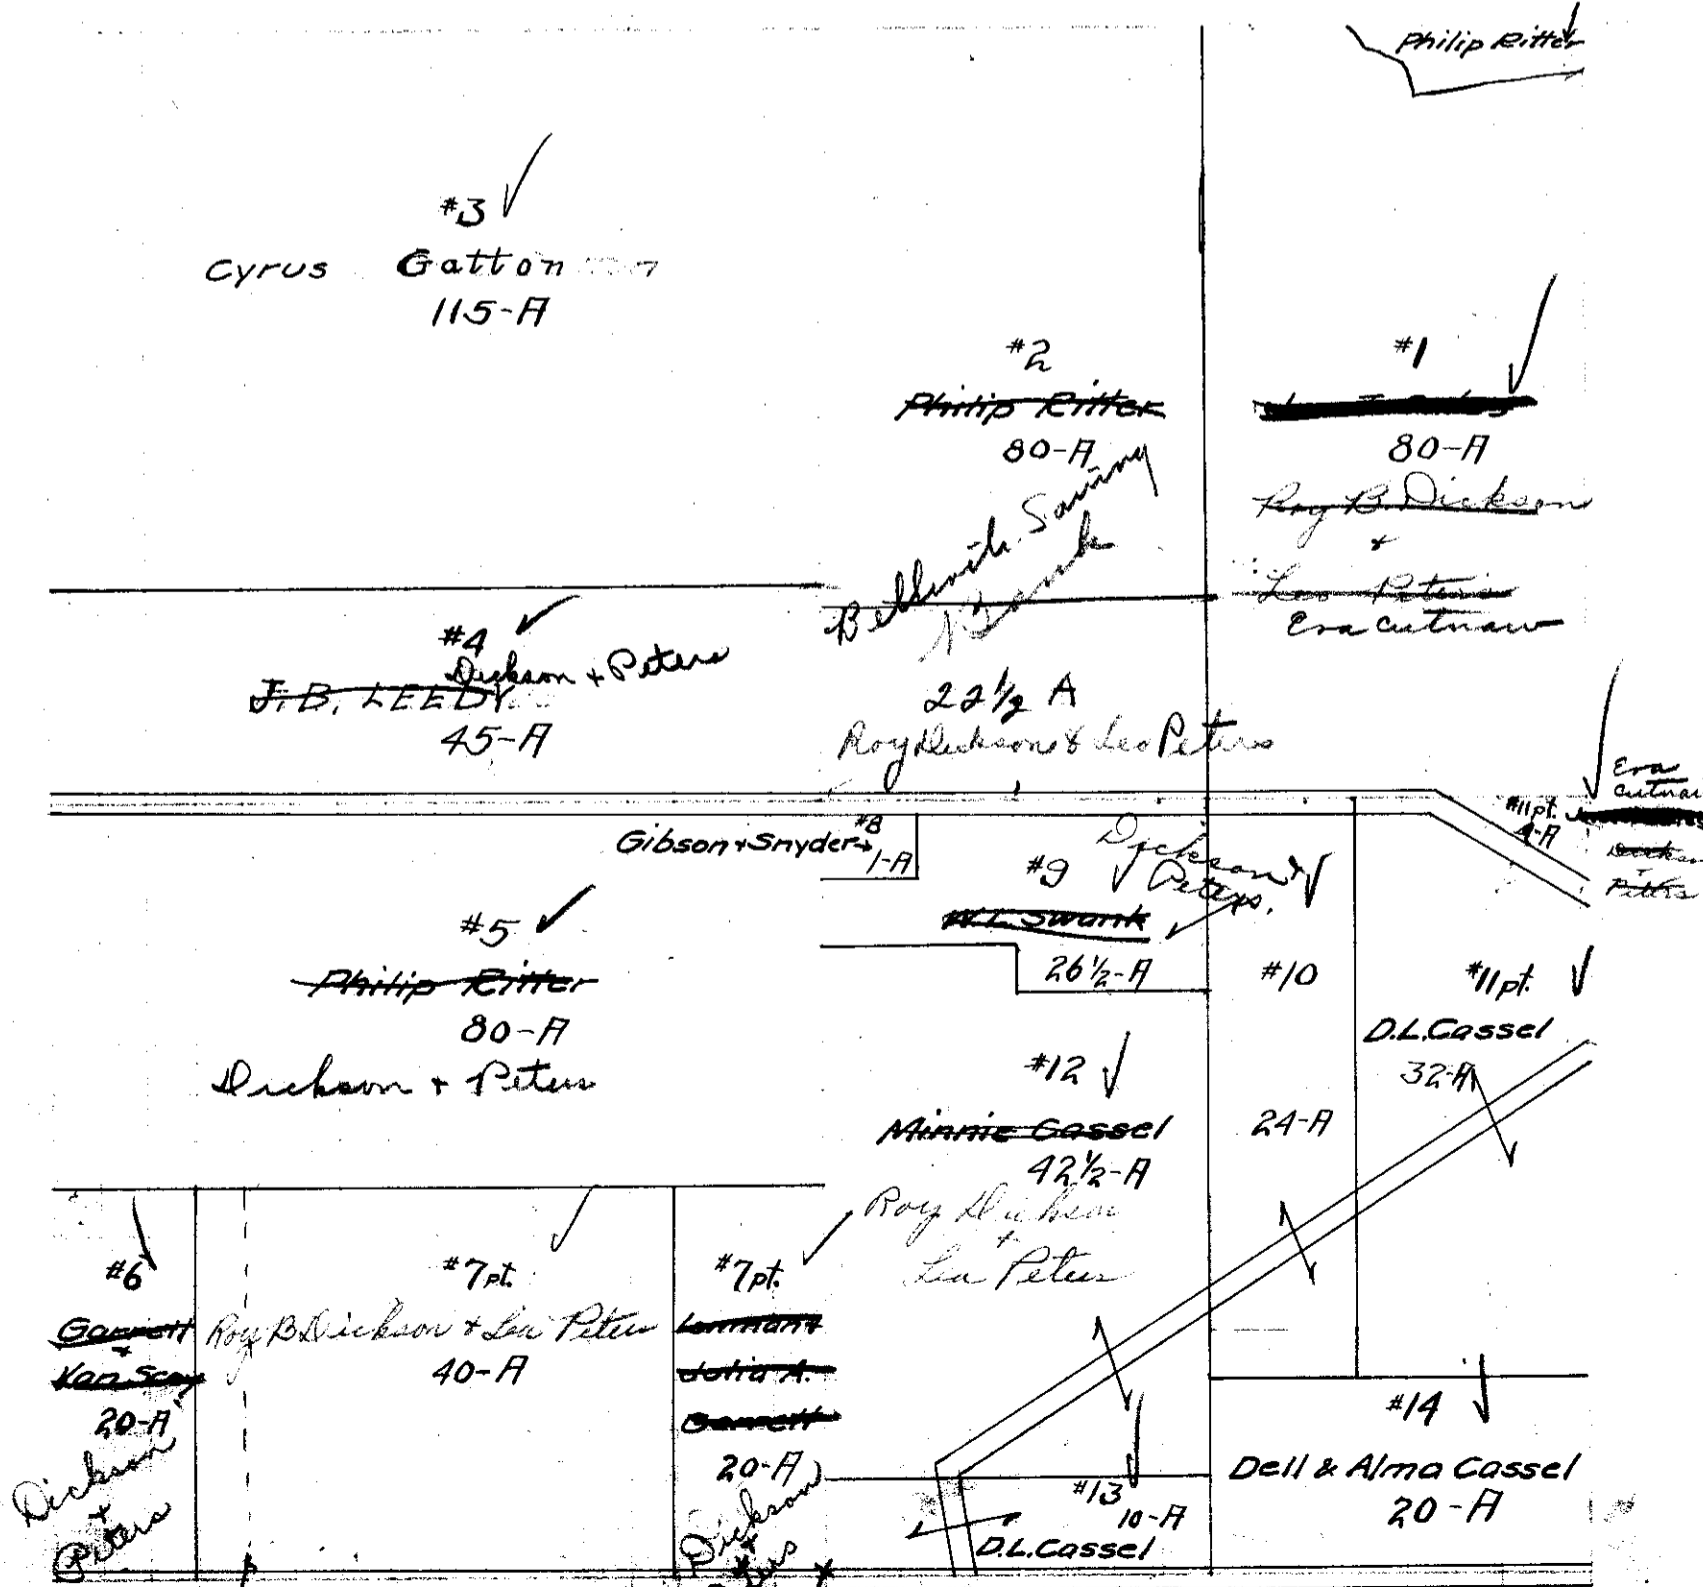 Philip Ritter
#3
Cyrus Gatton
115-A
#2
Philip Ritter
80-A
Bellville Saving
Bank
#1
80-A
Roy B. Dickson
+
Leo Peters
Era Cutnaw
#4
Dickson + Peters
J.B. LEEDY
45-A
22½ A
Roy Dickson & Leo Peters
Era
#11pt.
4-A
Dickson
+
Peters
Gibson + Snyder
#8
1-A
#9
Dickson &
Peters.
W.L. Swank
26½-A
#5
Philip Ritter
80-A
Dickson + Peters
#10
24-A
#11pt.
D.L. Cassel
32-A
#12
Minnie Cassel
42½-A
Roy Dickson
+
Leo Peters
#6
Garrett
+
Van Scoy
20-A
Dickson
+
Peters
#7pt.
Roy B Dickson + Leo Peters
40-A
#7pt.
Julia A.
Garrett
20-A
Dickson
+
Peters
#13
10-A
D.L. Cassel
#14
Dell & Alma Cassel
20-A